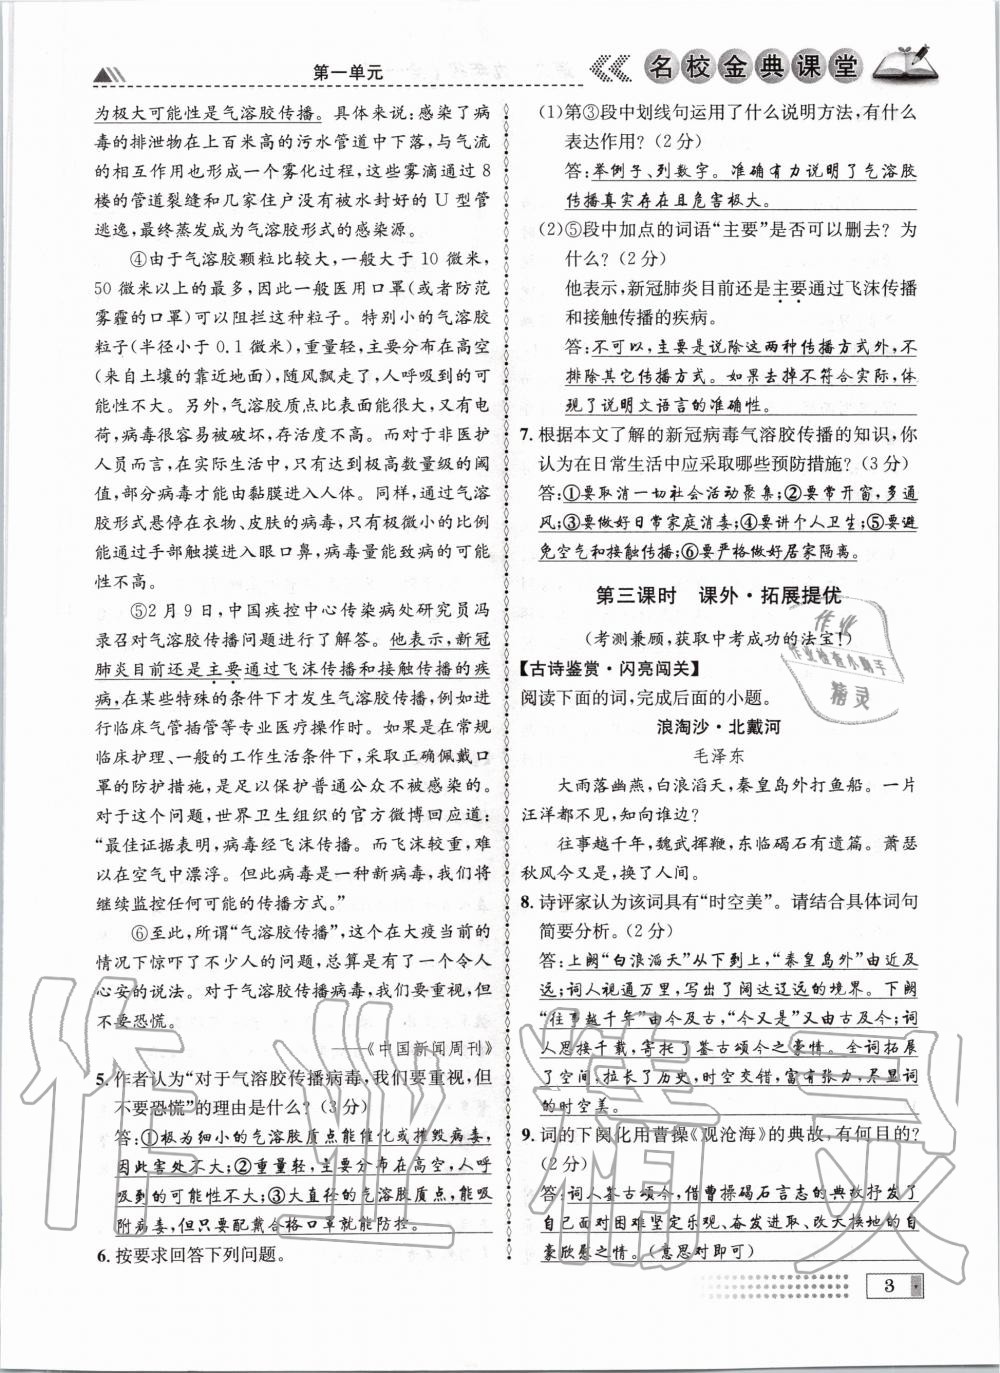 第一单元
名校金典课堂
为极大可能性是气溶胶传播。具体来说:感染了病
毒的排泄物在上百米高的污水管道中下落,与气流
的相互作用也形成一个雾化过程,这些雾滴通过 8
楼的管道裂缝和几家住户没有被水封好的 U 型管
逃逸,最终蒸发成为气溶胶形式的感染源。
④由于气溶胶颗粒比较大,一般大于 10 微米,
50 微米以上的最多,因此一般医用口罩(或者防范
雾霾的口罩)可以阻拦这种粒子。特别小的气溶胶
粒子(半径小于 0.1 微米),重量轻,主要分布在高空
(来自土壤的靠近地面),随风飘走了,人呼吸到的可
能性不大。另外,气溶胶质点比表面能很大,又有电
荷,病毒很容易被破坏,存活度不高。而对于非医护
人员而言,在实际生活中,只有达到极高数量级的阈
值,部分病毒才能由黏膜进入人体。同样,通过气溶
胶形式悬停在衣物、皮肤的病毒,只有极微小的比例
能通过手部触摸进入眼口鼻,病毒量能致病的可能
性不高。
⑤2 月 9 日,中国疾控中心传染病处研究员冯
录召对气溶胶传播问题进行了解答。他表示,新冠
肺炎目前还是主要通过飞沫传播和接触传播的疾
病,在某些特殊的条件下才发生气溶胶传播,例如进
行临床气管插管等专业医疗操作时。如果是在常规
临床护理、一般的工作生活条件下,采取正确佩戴口
罩的防护措施,是足够保障普通公众不被感染的。
对于这个问题,世界卫生组织的官方微博回应道:
“最佳证据表明,病毒经飞沫传播。而飞沫较重,难
以在空气中漂浮。但此病毒是一种新病毒,我们将
继续监控任何可能的传播方式。”
⑥至此,所谓“气溶胶传播”,这个在大疫当前的
情况下惊吓了不少人的问题,总算是有了一个令人
心安的说法。对于气溶胶传播病毒,我们要重视,但
不要恐慌。
——《中国新闻周刊》
5. 作者认为“对于气溶胶传播病毒,我们要重视,但
不要恐慌”的理由是什么?(3 分)
答:①极为细小的气溶胶质点能催化或摧毁病毒,
因此害处不大;②重量轻,主要分布在高空,人呼
吸到的可能性不大;③大直径的气溶胶质点,能吸
附病毒,但只要配戴合格口罩就能防控。
6. 按要求回答下列问题。
(1)第③段中划线句运用了什么说明方法,有什么
表达作用?(2 分)
答:举例子、列数字。准确有力说明了气溶胶
传播真实存在且危害极大。
(2)⑤段中加点的词语“主要”是否可以删去? 为
什么?(2 分)
他表示,新冠肺炎目前还是主要通过飞沫传播
和接触传播的疾病。
答:不可以,主要是说除这两种传播方式外,不
排除其它传播方式。如果去掉不符合实际,体
现了说明文语言的准确性。
7. 根据本文了解的新冠病毒气溶胶传播的知识,你
认为在日常生活中应采取哪些预防措施?(3 分)
答:①要取消一切社会活动聚集;②要常开窗,多通
风;③要做好日常家庭消毒;④要讲个人卫生;⑤要避
免空气和接触传播;⑥要严格做好居家隔离。
第三课时 课外·拓展提优
(考测兼顾,获取中考成功的法宝!)
【古诗鉴赏·闪亮闯关】
阅读下面的词,完成后面的小题。
浪淘沙·北戴河
毛泽东
大雨落幽燕,白浪滔天,秦皇岛外打鱼船。一片
汪洋都不见,知向谁边?
往事越千年,魏武挥鞭,东临碣石有遗篇。萧瑟
秋风今又是,换了人间。
8. 诗评家认为该词具有“时空美”。请结合具体词句
简要分析。(2 分)
答:上阕“白浪滔天”从下到上,“秦皇岛外”由近及
远;词人视通万里,写出了阔达辽远的境界。下阕
“往事越千年”由今及古,“今又是”又由古及今;词
人思接千载,寄托了鉴古颂今之豪情。全词拓展
了空间,拉长了历史,时空交错,富有张力,尽显词
的时空美。
9. 词的下阕化用曹操《观沧海》的典故,有何目的?
(2 分)
答:词人鉴古颂今,借曹操碣石言志的典故抒发了
自己面对困难坚定乐观、奋发进取、改天换地的自
豪欣慰之情。(意思对即可)
作业
作业检查小助手
精灵
作业精灵
3